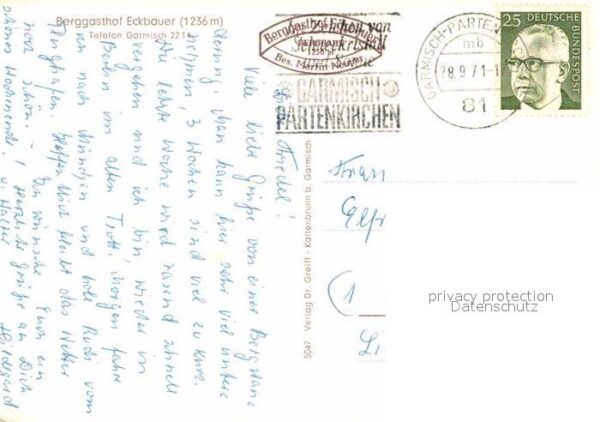 Berggasthof Eckbauer (1236 m)
Telefon Garmisch 2214
Friedel!
Viele liebe Grüße von einer Bergtour
Man kann hier sehr viel unter-
nehmen, 3 Wochen sind viel zu kurz.
Die letzte Woche wird rasend schnell
vergehen und ich bin wieder in
Berlin im alten Trott. Morgen fahre
ich nach München und hole Rudi vom
Flughafen. Hoffen bleibt das Wetter
noch schön. Ein
schönes Wochenende! Herzliche Grüße an Dich
u. Walter Hildegard
5047 Verlag Dr. Greiff - Kaltenbrunn b. Garmisch
Berggasthof Eckbauer
BERGBAHN
1236 m
Bes. Martin Neuner
GARMISCH
PARTENKIRCHEN
GARMISCH-PARTENKIRCHEN
mb
28.9.71-1
81
25 DEUTSCHE
BUNDESPOST
Frau
Elfr
(1
Li
privacy protection
Datenschutz